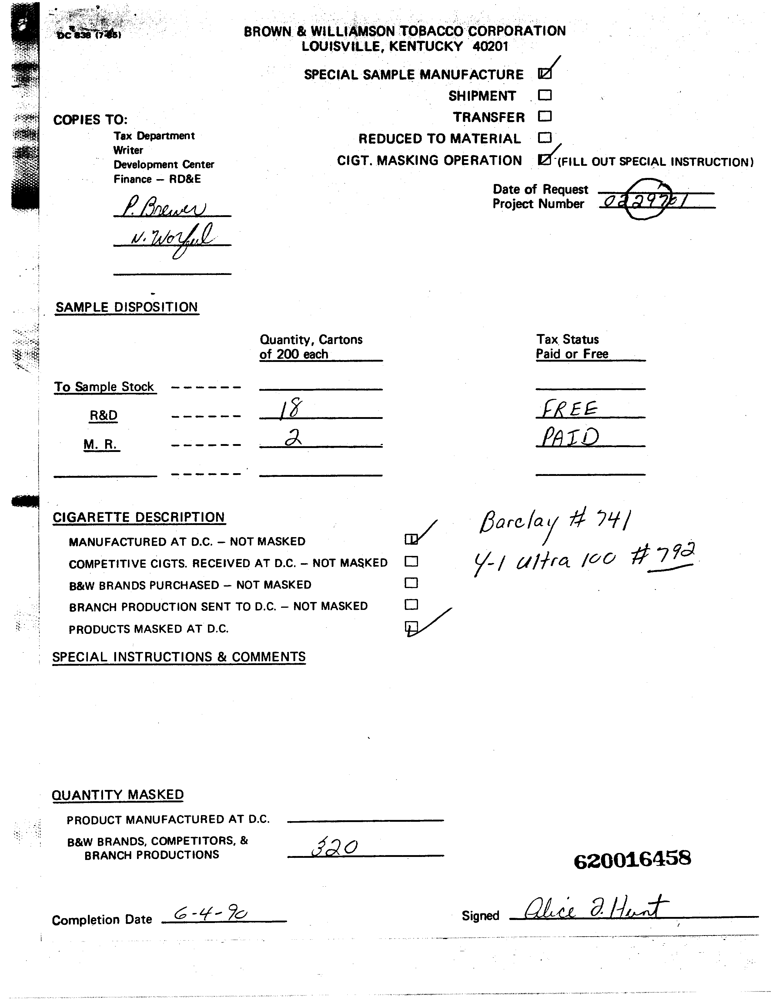 DC 838 (7-85)
BROWN & WILLIAMSON TOBACCO CORPORATION
LOUISVILLE, KENTUCKY 40201
SPECIAL SAMPLE MANUFACTURE
SHIPMENT
TRANSFER
REDUCED TO MATERIAL
CIGT. MASKING OPERATION (FILL OUT SPECIAL INSTRUCTION)
COPIES TO:
Tax Department
Writer
Development Center
Finance – RD&E
P. Brewer
N.
Date of Request
Project Number
SAMPLE DISPOSITION
Quantity, Cartons of 200 each
Tax Status Paid or Free
To Sample Stock
R&D 18 FREE
M. R. 2 PAID
CIGARETTE DESCRIPTION
MANUFACTURED AT D.C. – NOT MASKED
COMPETITIVE CIGTS. RECEIVED AT D.C. – NOT MASKED
B&W BRANDS PURCHASED – NOT MASKED
BRANCH PRODUCTION SENT TO D.C. – NOT MASKED
PRODUCTS MASKED AT D.C.
Barclay # 741
Y-1 Ultra 100 # 792
SPECIAL INSTRUCTIONS & COMMENTS
QUANTITY MASKED
PRODUCT MANUFACTURED AT D.C.
B&W BRANDS, COMPETITORS, &
BRANCH PRODUCTIONS 320
620016458
Completion Date 6-4-90
Signed Alice J. Hunt